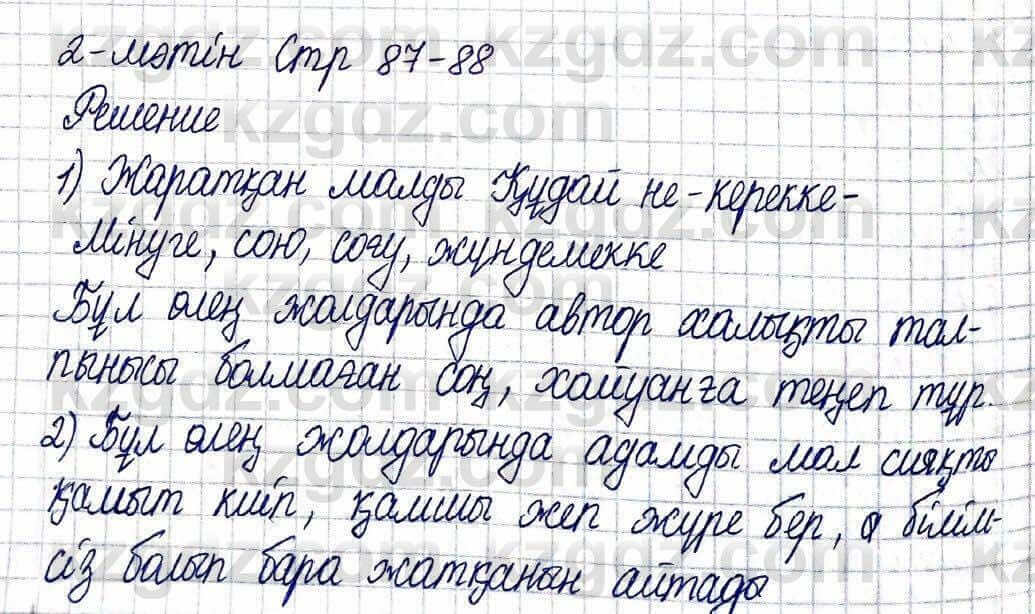 2-мәтін Стр 87-88
Решение
1) Жаратқан малды Құдай не-керекке-
Мінуге, сою, согу, жүндемекке
Бұл өлең жолдарында автор халықты тал-
пынысы болмаған соң, хайуанға теңеп тұр.
2) Бұл өлең жолдарында адамды мал сияқты
қамыт киіп, қамшы жеп жүре бер, білім-
сіз болып бара жатқанын айтады